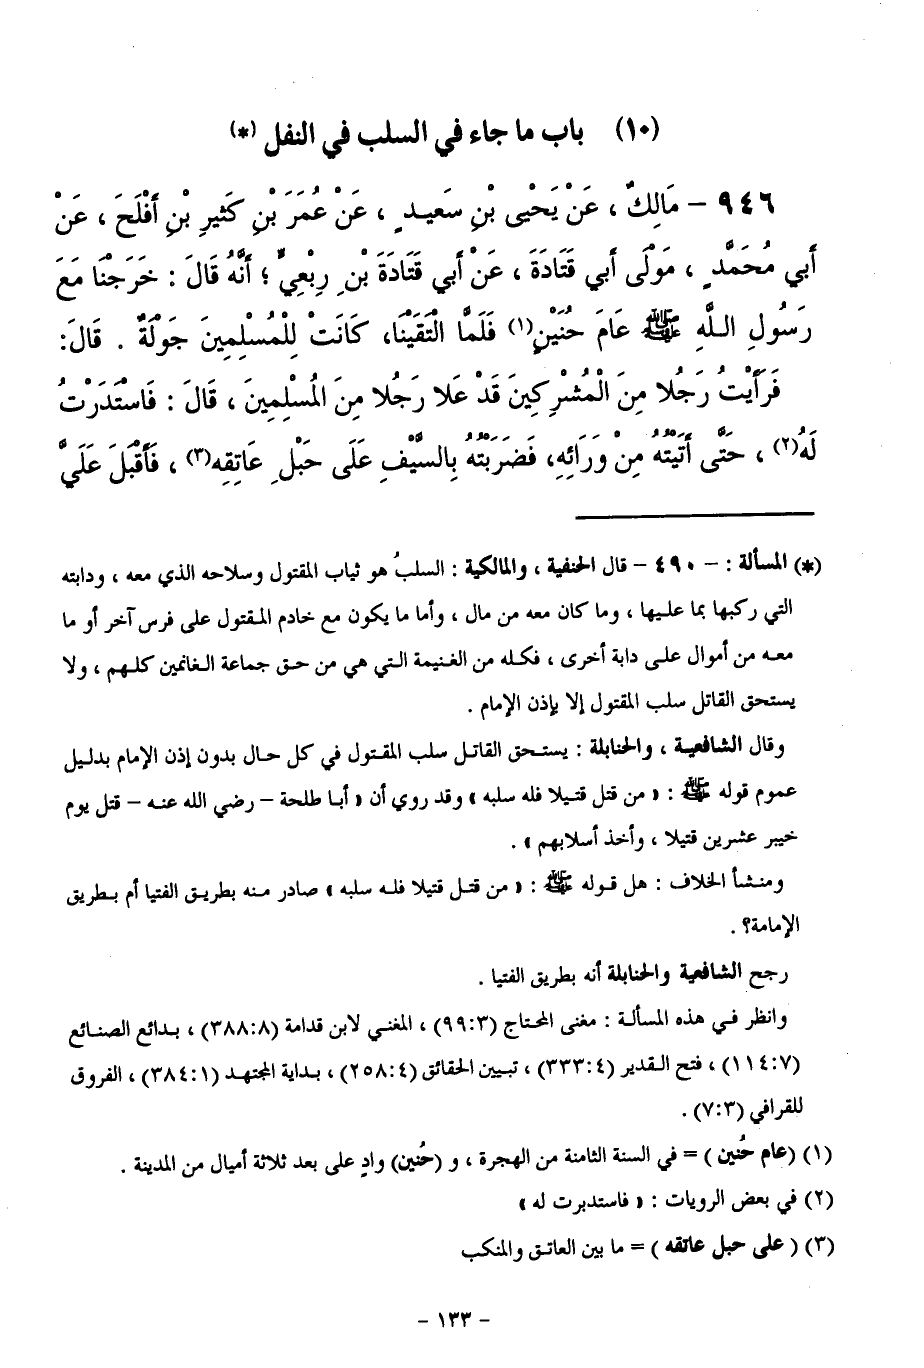 (١٠) باب ما جاء في السلب في النفل (*)
٩٤٦ – مَالِكٌ ، عَنْ يَحْيى بْنِ سَعيدٍ ، عَنْ عُمَرَ بْنِ كَثيرِ بْنِ أَفْلَحَ ، عَنْ
أَبي مُحَمَّدٍ ، مَوْلَى أَبي قَتَادَةَ ، عَنْ أَبي قَتَادَةَ بْنِ رِبْعِيٍّ ؛ أَنَّهُ قَالَ : خَرَجْنَا مَعَ
رَسُولِ اللَّهِ ﷺ عَامَ حُنَيْنٍ(١) فَلَمَّا الْتَقَيْنَا، كَانَتْ لِلْمُسْلِمِينَ جَوْلَةٌ . قَالَ:
فَرَأَيْتُ رَجُلا مِنَ الْمُشْرِكِينَ قَدْ عَلا رَجُلا مِنَ الْمُسْلِمِينَ ، قَالَ : فَاسْتَدَرْتُ
لَهُ(٢) ، حَتَّى أَتَيْتُهُ مِنْ وَرَائِهِ، فَضَرَبْتُهُ بِالسَّيْفِ عَلَى حَبْلِ عَاتِقِه(٣) ، فَأَقْبَلَ عَلَيَّ
(*) المسألة : – ٤٩٠ – قال الحنفية ، والمالكية : السلبُ هو ثياب المقتول وسلاحه الذي معه ، ودابته
التي ركبها بما عليها ، وما كان معه من مال ، وأما ما يكون مع خادم المقتول على فرس آخر أو ما
معه من أموال على دابة أخرى ، فكله من الغنيمة التي هي من حق جماعة الغانمين كلهم ، ولا
يستحق القاتل سلب المقتول إلا بإذن الإمام .
وقال الشافعية ، والحنابلة : يستحق القاتل سلب المقتول في كل حال بدون إذن الإمام بدليل
عموم قوله ﷺ : « من قتل قتيلا فله سلبه » وقد روي أن « أبا طلحة – رضي الله عنه – قتل يوم
خيبر عشرين قتيلا ، وأخذ أسلابهم » .
ومنشأ الخلاف : هل قوله ﷺ : « من قتل قتيلا فله سلبه » صادر منه بطريق الفتيا أم بطريق
الإمامة؟ .
رجح الشافعية والحنابلة أنه بطريق الفتيا .
وانظر في هذه المسألة : مغنى المحتاج (٩٩:٣) ، المغني لابن قدامة (٣٨٨:٨) ، بدائع الصنائع
(١١٤:٧) ، فتح القدير (٣٣٣:٤) ، تبيين الحقائق (٢٥٨:٤) ، بداية المجتهد (٣٨٤:١) ، الفروق
للقرافي (٧:٣) .
(١) (عام حُنين ) = في السنة الثامنة من الهجرة ، و (حُنين) وادٍ على بعد ثلاثة أميال من المدينة .
(٢) في بعض الرويات : « فاستدبرت له »
(٣) ( على حبل عاتقه ) = ما بين العاتق والمنكب
– ١٣٣ –